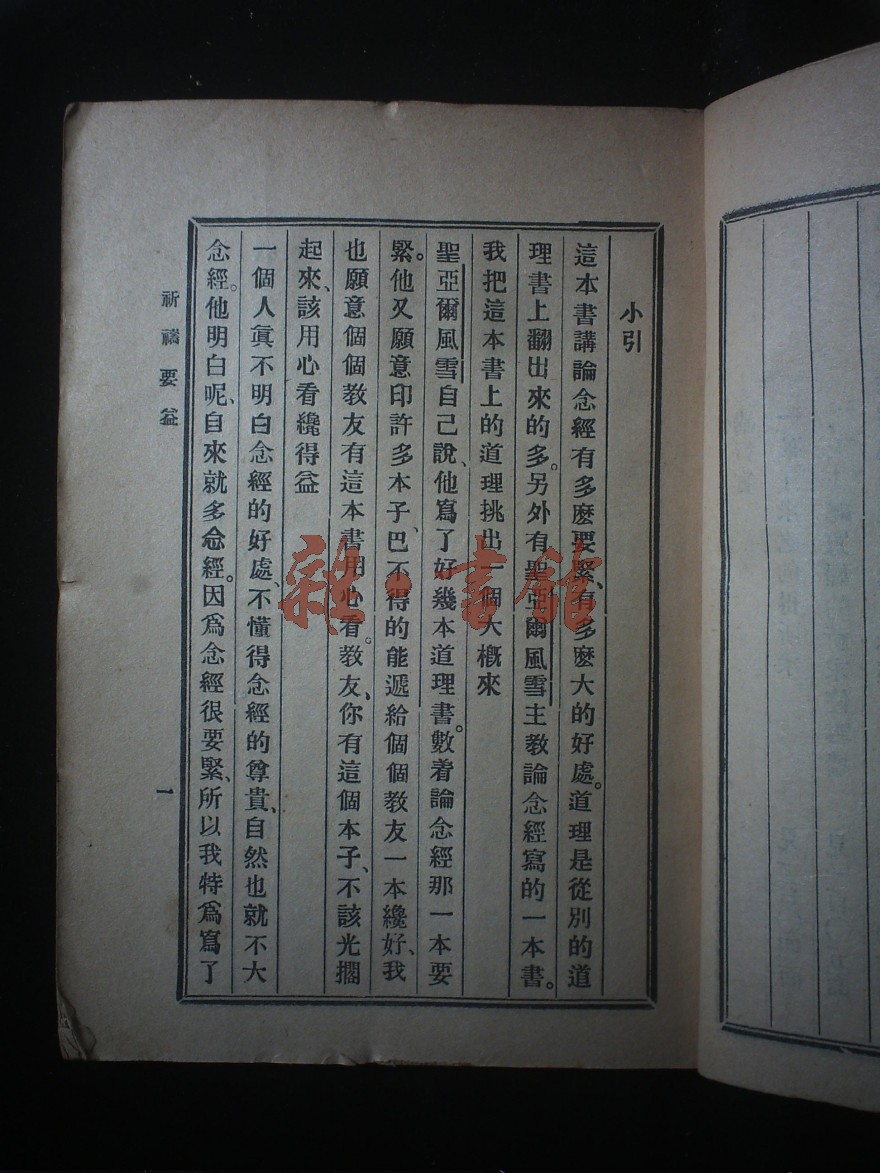 小引
這本書講論念經有多麽要緊、有多麽大的好處。道理是從別的道
理書上翻出來的多。另外有聖亞爾風雪主教論念經寫的一本書。
我把這本書上的道理挑出一個大槪來
聖亞爾風雪自己說、他寫了好幾本道理書。數着論念經那一本要
緊。他又願意印許多本子、巴不得的能遞給個個教友一本纔好、我
也願意個個教友有這本書用心看。教友、你有這個本子、不該光擱
起來、該用心看纔得益
一個人眞不明白念經的好處、不懂得念經的尊貴、自然也就不大
念經。他明白呢、自來就多念經。因爲念經很要緊、所以我特爲寫了
祈禱要益
一
雜·書館